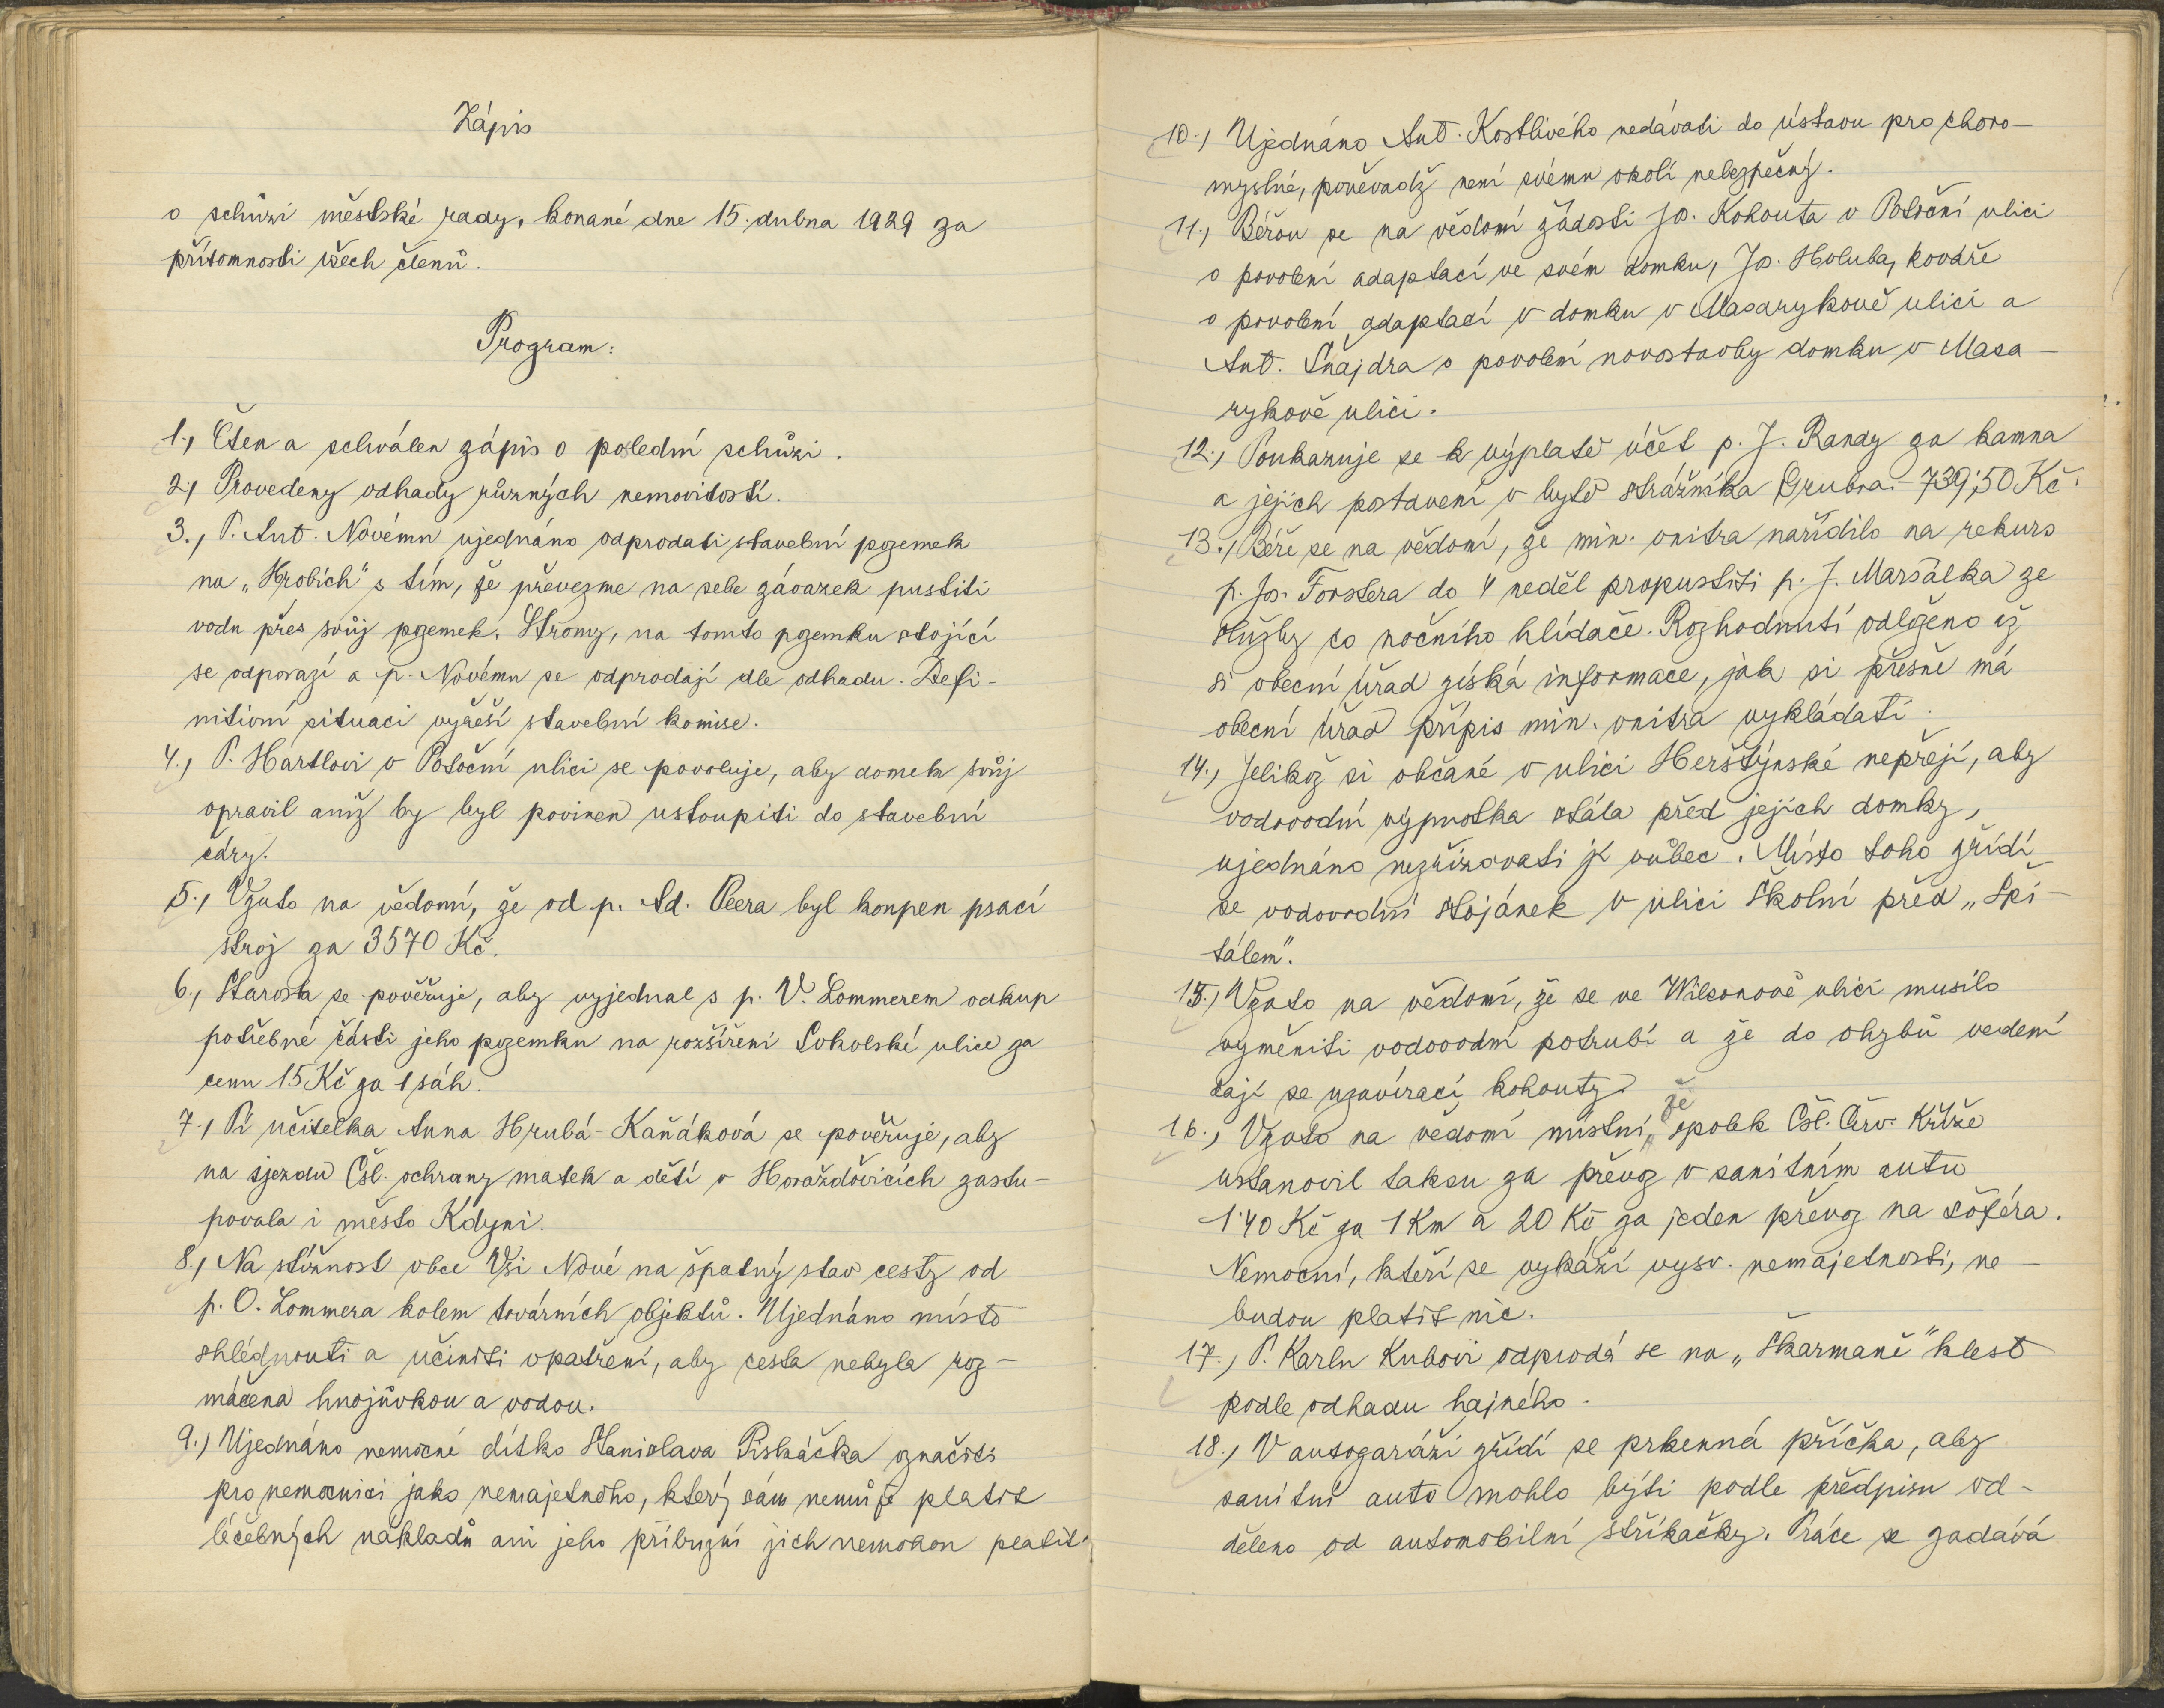 Zápis
o schůzi městské rady, konané dne 15. dubna 1929 za
přítomnosti všech členů.
Program:
1., Čten a schválen zápis o poslední schůzi.
2., Provedeny odhady různých nemovitostí.
3., P. Ant. Novému ujednáno odprodati stavební pozemek
na „Hrobích" s tím, že převezme na sebe závazek pustiti
vodu přes svůj pozemek. Stromy, na tomto pozemku stojící
se odporazí a p. Novému se odprodají dle odhadu. Defi-
nitivní situaci vyřeší stavební komise.
4., P. Hartlovi v Potoční ulici se povoluje, aby domek svůj
opravil aniž by byl povinen ustoupiti do stavební
čáry.
5., Vzato na vědomí, že od p. Ad. Peera byl koupen psací
stroj za 3570 Kč.
6., Starosta se pověřuje, aby vyjednal s p. V. Lommerem odkup
potřebné části jeho pozemku na rozšíření Sokolské ulice za
cenu 15 Kč za 1 sáh.
7., Pí učitelka Anna Hrubá-Kaňáková se pověřuje, aby
na sjezdu Čsl. ochrany matek a dětí v Horažďovicích zastu-
povala i město Kdyni.
8., Na stížnost obce Vsi Nové na špatný stav cesty od
p. O. Lommera kolem továrních objektů. Ujednáno místo
shlédnouti a učiniti opatření, aby cesta nebyla roz-
máčena hnojůvkou a vodou.
9.) Ujednáno nemocné dítko Stanislava Piskáčka označiti
pro nemocnici jako nemajetného, který sám nemůže platit
léčebných nákladů ani jeho příbuzní jich nemohou platit.
10.) Ujednáno Ant. Kostlivého nedávati do ústavu pro choro-
myslné, poněvadž není svému okolí nebezpečný.
11., Béřou se na vědomí žádosti Jos. Kohouta v Potoční ulici
o povolení adaptací ve svém domku, Jos. Holuba, kováře
o povolení adaptací v domku v Masarykově ulici a
Ant. Šnajdra o povolení novostavby domku v Masa-
rykově ulici.
12., Poukazuje se k výplatě účet p. J. Randy za kamna
a jejich postavení v bytě strážníka Grubra - 739,50 Kč.
13., Béře se na vědomí, že min. vnitra nařídilo na rekurs
p. Jos. Forstera do 4 neděl propustiti p. J. Maršálka ze
služby co nočního hlídače. Rozhodnutí odloženo až
si obecní úřad získá informace, jak si přesně má
obecní úřad přípis min. vnitra vykládati.
14., Jelikož si občané v ulici Herštýnské nepřejí, aby
vodovodní výpustka stála před jejich domky,
ujednáno nezřizovati ji vůbec. Místo toho zřídí
se vodovodní stojánek v ulici Školní před „Špi-
tálem".
15., Vzato na vědomí, že se ve Wilsonově ulici musilo
vyměniti vodovodní potrubí a že do ohybů vedení
dají se uzavírací kohouty.
16., Vzato na vědomí místní, že spolek Čsl. Červ. Kříže
ustanovil taksu za převoz v sanitním autu
1.40 Kč za 1 Km a 20 Kč za jeden převoz na šoféra.
Nemocní, kteří se vykáží vysv. nemajetnosti, ne-
budou platit nic.
17., P. Karlu Kubovi odprodá se na „Škarmaně" klest
podle odhadu hajného.
18., V autogaráži zřídí se prkenná příčka, aby
sanitní auto mohlo býti podle předpisu od-
děleno od automobilní stříkačky. Práce se zadává